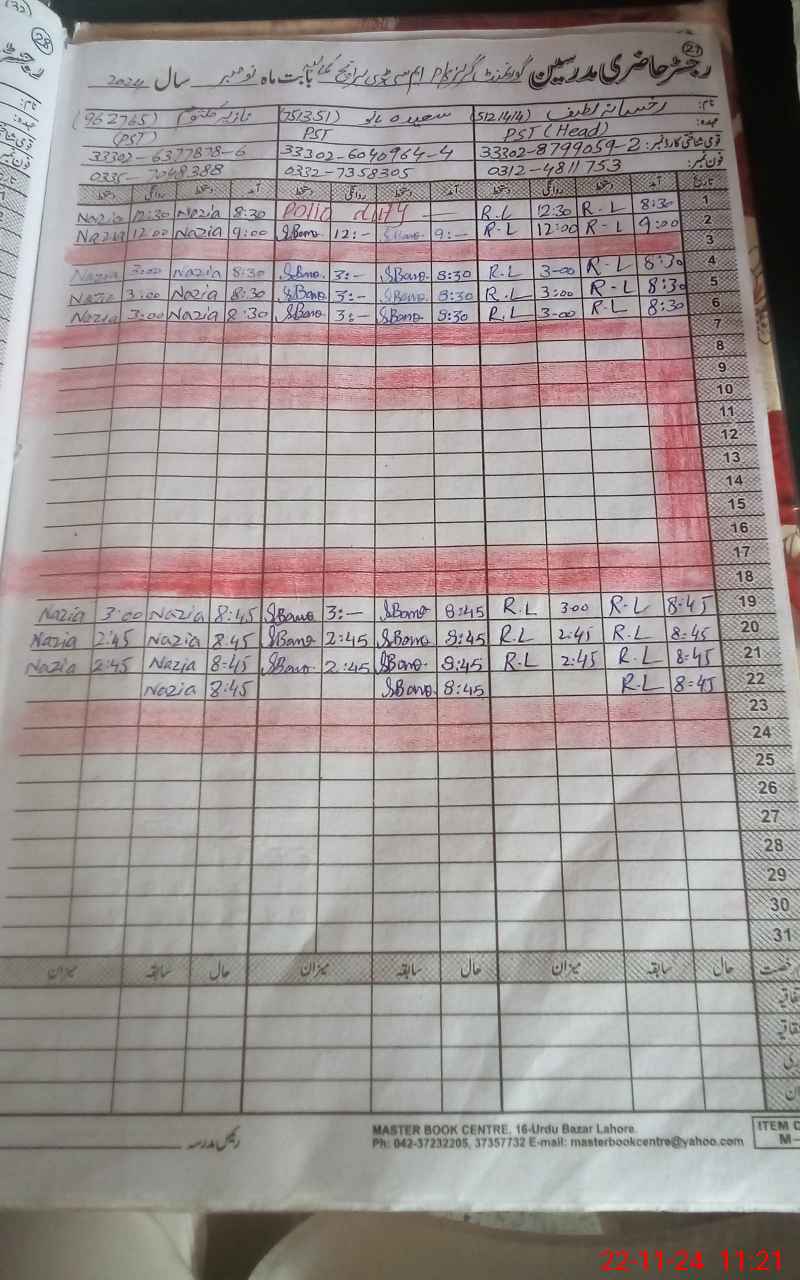 28
21
رجسٹر حاضری مدرسین گورنمنٹ گرلز بابت ماہ نومبر سال 2024
نام: رخسانہ لطیف (5121414) سعیدہ بانو (751351) نازیہ کلثوم (962765)
عہدہ: PST (Head) PST (PST)
قومی شناختی کارڈ نمبر: 33302-8799059-2 33302-6040964-4 33302-6377878-6
فون نمبر: 0312-4811753 0332-7358305 0335-7048388
تاریخ آمد دستخط روانگی دستخط آمد دستخط روانگی دستخط آمد دستخط روانگی دستخط
Nazia 12:30 Nazia 8:30 Polio duty — R.L 12:30 R-L 8:30 1
Nazia 12:00 Nazia 9:00 SBano 12:- SBano 9:- R-L 12:00 R-L 9:00 2
3
Nazia 3:00 Nazia 8:30 SBano. 3:- SBano. 8:30 R-L 3-00 R-L 8:30 4
Nazia 3:00 Nazia 8:30 SBano. 3:- SBano. 8:30 R.L 3:00 R-L 8:30 5
Nazia 3:00 Nazia 8:30 SBano 3:- SBano. 8:30 R.L 3-00 R-L 8:30 6
7
8
9
10
11
12
13
14
15
16
17
18
Nazia 3:00 Nazia 8:45 SBano 3:- SBano 8:45 R.L 3:00 R-L 8:45 19
Nazia 2:45 Nazia 8:45 SBano 2:45 SBano 8:45 R.L 2:45 R-L 8:45 20
Nazia 2:45 Nazia 8:45 SBano. 2:45 SBano. 8:45 R.L 2:45 R.L 8:45 21
Nazia 8:45 SBano. 8:45 R.L 8:45 22
23
24
25
26
27
28
29
30
31
رخصت حال سابقہ میزان حال سابقہ میزان حال سابقہ میزان
رئیس مدرسہ
MASTER BOOK CENTRE, 16-Urdu Bazar Lahore.
Ph: 042-37232205, 37357732 E-mail: masterbookcentre@yahoo.com
ITEM
M-
22-11-24 11:21